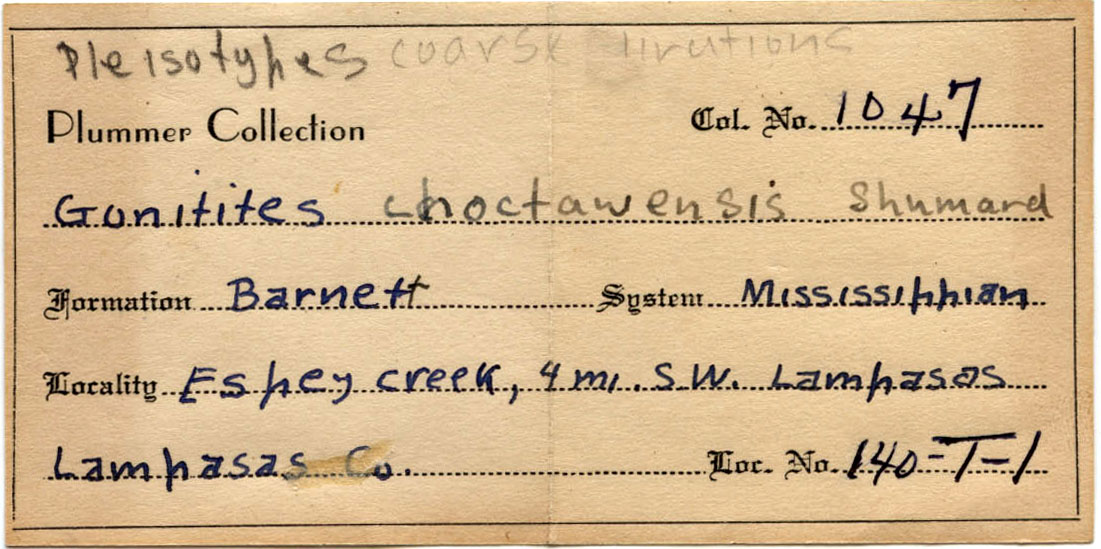 Pleisotypes coarse lirutions
Plummer Collection Col. No. 1047
Gonitites choctawensis Shumard
Formation Barnett System Mississippian
Locality Espey creek, 4 mi. S.W. Lampasas
Lampasas Co. Loc. No. 140-T-1